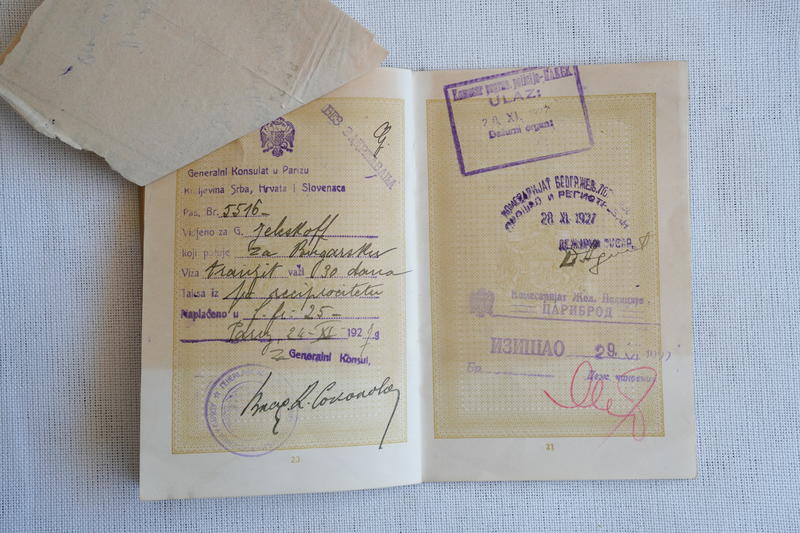 БЕЗ ЗАДРЖАВАЊА
Generalni Konsulat u Parizu
Kraljevina Srba, Hrvata i Slovenaca
Pas. Br. 5516
Vidjeno za G. Jeleskoff
koji putuje za Bugarsku
Viza tranzit važi 30 dana
Taksa iz po reciprocitetu
Naplaćeno u f. fr. 25-
Pariz, 24-XI- 1927 g
Za Generalni Konsul,
23
ULAZ:
28. XI. 1927
Dežurni organ:
КОМЕСАРИЈАТ БЕОГР. ЖЕЉ.
И РЕГИСТРОВАН
28 XI. 1927
ДЕЖУРНИ
Комесаријат Жел. Полиције
ЦАРИБРОД
ИЗИШАО 29. XI 1927
Бр.
Деж. чиновник
21